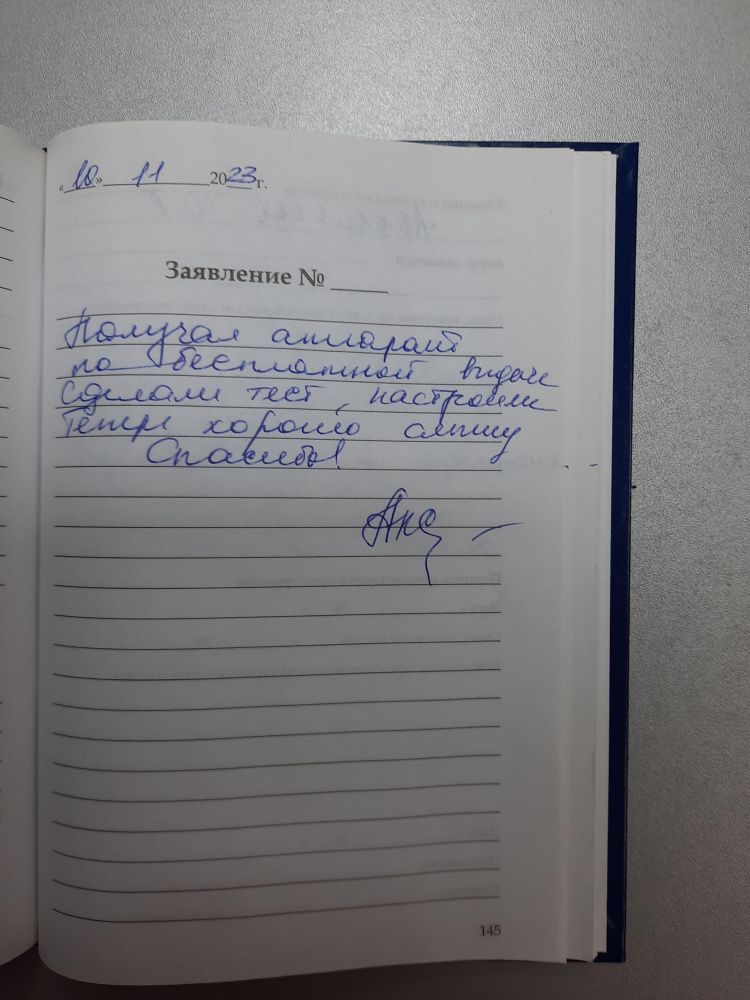 «10» 11 2023 г.
Заявление № ____
Получал аппарат
по бесплатной выдаче
сделали тест, настроили
Теперь хорошо слышу
Спасибо!
145